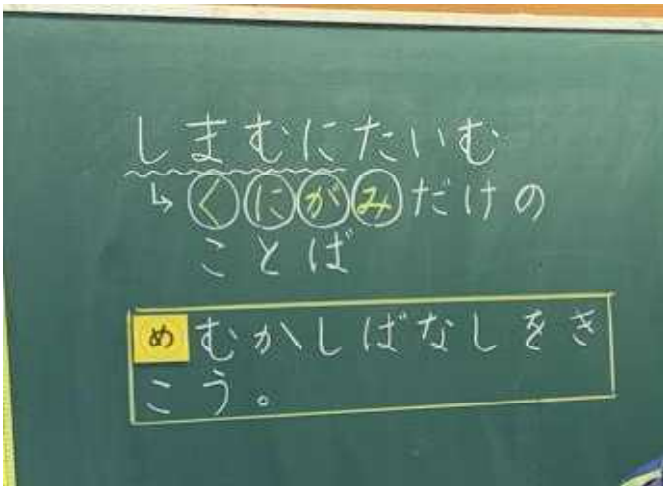 しまむにたいむ
↳くにがみだけの
ことば
めむかしばなしをき
こう。